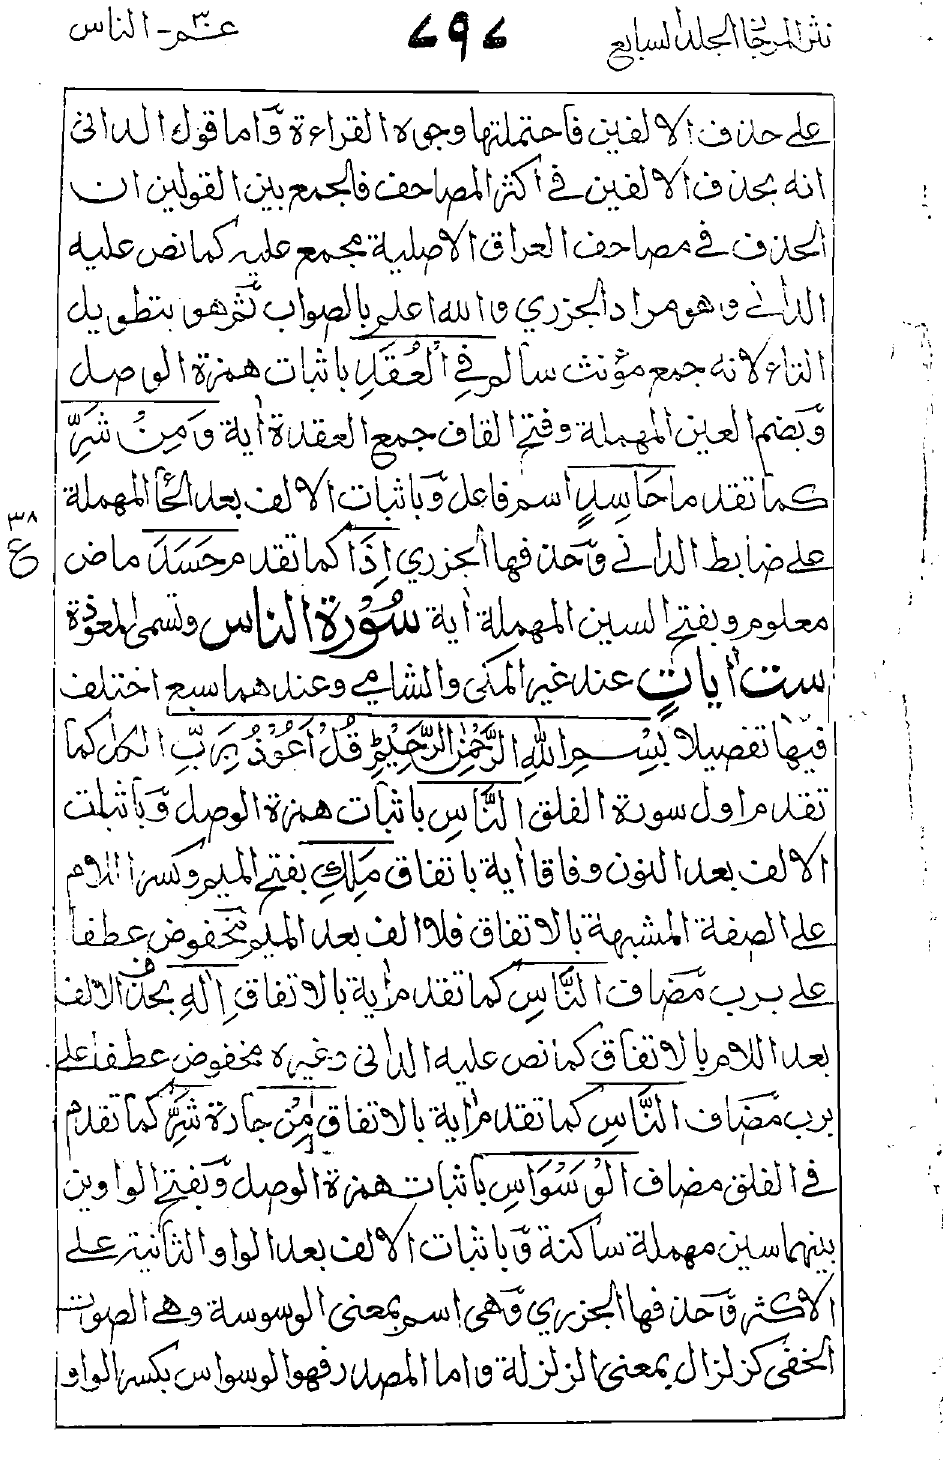 نثر المرجان المجلد السابع
٧٩٧
عم٣٠ - الناس
على حذف الالفين فاحتملتها وجوه القراءة واما قول الدانى
انه بحذف الالفين فى اكثر المصاحف فالجمع بين القولين ان
الحذف فى مصاحف العراق الاصلية مجمع عليه كما نص عليه
الدانى وهو مراد الجزري والله اعلم بالصواب ثم هو بتطويل
التاء لانه جمع مؤنث سالم فِي الْعُقَدِ باثبات همزة الوصل
وبضم العين المهملة وفتح القاف جمع العقدة اية وَمِنْ شَرِّ
كما تقدما حَاسِدٍ اسم فاعل وباثبات الالف بعد الحاء المهملة
على ضابط الدانى وحذفها الجزري اِذَا كما تقدم حَسَدَ ماض
٣٨
ع
معلوم وبفتح السين المهملة اية سُوْرة الناس وتسمى المعوذة
ست اٰيات عند غير المكى والشامى وعندهما سبع اختلف
فيها تفصيلا بِسْمِ اللهِ الرَّحْمٰنِ الرَّحِيْمِ قُلْ اَعُوْذُ بِرَبِّ الكل كما
تقدم اول سورة الفلق النَّاسِ باثبات همزة الوصل وباثبات
الالف بعد النون وفاقا اية باتفاق مَلِكِ بفتح الميم وكسر اللام
على الصفة المشبهة بالاتفاق فلا الف بعد الميم مخفوض عطفا
على برب مضاف النَّاسِ كما تقدم اية بالاتفاق اِلٰهِ بحذف الالف
بعد اللام بالاتفاق كما نص عليه الدانى وغيره مخفوض عطفا على
برب مضاف النَّاسِ كما تقدم اية بالاتفاق مِنْ جارة شَرِّ كما تقدم
فى الفلق مضاف الْوَسْوَاسِ باثبات همزة الوصل وبفتح الواوين
بينهما سين مهملة ساكنة وباثبات الالف بعد الواو الثانية على
الاكثر وحذفها الجزري وهى اسم بمعنى الوسوسة وهى الصوت
الخفى كزلزال بمعنى الزلزلة واما المصدر فهو الوسواس بكسر الواو